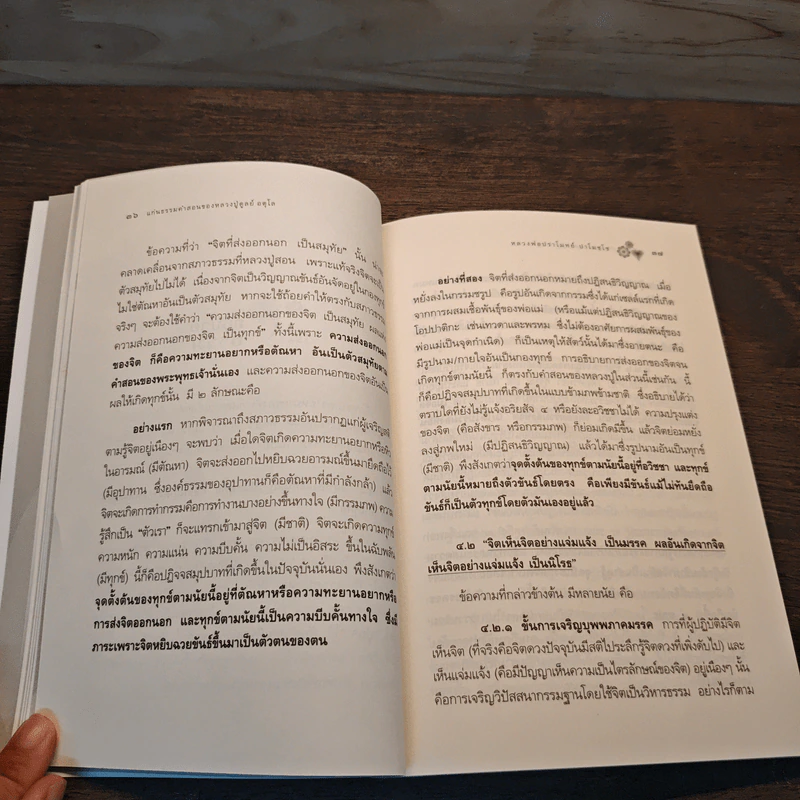 ๒๖ แก่นธรรมคำสอนของหลวงปู่ดูลย์ อตุโล
ข้อความที่ว่า “จิตที่ส่งออกนอก เป็นสมุทัย” นั้น
คลาดเคลื่อนจากสภาวธรรมที่หลวงปู่สอน เพราะแท้จริงจิตจะเป็น
ตัวสมุทัยไปไม่ได้ เนื่องจากจิตเป็นวิญญาณขันธ์อันจัดอยู่ในกองทุกข์
ไม่ใช่ตัณหาอันเป็นตัวสมุทัย หากจะใช้ถ้อยคำให้ตรงกับสภาวธรรม
จริงๆ จะต้องใช้คำว่า “ความส่งออกนอกของจิต เป็นสมุทัย
ความส่งออกนอกของจิต เป็นทุกข์” ทั้งนี้เพราะ ความส่งออกนอก
ของจิต ก็คือความทะยานอยากหรือตัณหา อันเป็นตัวสมุทัยตาม
คำสอนของพระพุทธเจ้านั่นเอง และความส่งออกนอกของจิตอันเป็น
ผลให้เกิดทุกข์นั้น มี ๒ ลักษณะคือ
อย่างแรก หากพิจารณาถึงสภาวธรรมอันปรากฏแก่ผู้เจริญสติ
ตามรู้จิตอยู่เนืองๆ จะพบว่า เมื่อใดจิตเกิดความทะยานอยากหรือ
ในอารมณ์ (มีตัณหา) จิตจะส่งออกไปหยิบฉวยอารมณ์ขึ้นมายึดถือไว้
(มีอุปาทาน ซึ่งองค์ธรรมของอุปาทานก็คือตัณหาที่มีกำลังกล้า) แล้ว
จิตจะเกิดการทำกรรมคือการทำงานบางอย่างขึ้นทางใจ (มีกรรมภพ) ความ
รู้สึกเป็น “ตัวเรา” ก็จะแทรกเข้ามาสู่จิต (มีชาติ) จิตจะเกิดความทุกข์
ความหนัก ความแน่น ความบีบคั้น ความไม่เป็นอิสระ ขึ้นในฉับพลัน
(มีทุกข์) นี้ก็คือปฏิจจสมุปบาทที่เกิดขึ้นในปัจจุบันนั่นเอง พึงสังเกตว่า
จุดตั้งต้นของทุกข์ตามนัยนี้อยู่ที่ตัณหาหรือความทะยานอยากหรือ
การส่งจิตออกนอก และทุกข์ตามนัยนี้เป็นความบีบคั้นทางใจ ซึ่งมี
ภาระเพราะจิตหยิบฉวยขันธ์ขึ้นมาเป็นตัวตนของตน
หลวงพ่อปราโมทย์ ปาโมชฺโช ๓๗
อย่างที่สอง จิตที่ส่งออกนอกหมายถึงปฏิสนธิวิญญาณ เมื่อ
หยั่งลงในกรรมชรูป คือรูปอันเกิดจากกรรมซึ่งได้แก่เซลล์แรกที่เกิด
จากการผสมเชื้อพันธุ์ของพ่อแม่ (หรือแม้แต่ปฏิสนธิวิญญาณของ
โอปปาติกะ เช่นเทวดาและพรหม ซึ่งไม่ต้องอาศัยการผสมพันธุ์ของ
พ่อแม่เป็นจุดกำเนิด) ก็เป็นเหตุให้สัตว์นั้นได้มาซึ่งอายตนะ คือ
มีรูปนาม/กายใจอันเป็นกองทุกข์ การอธิบายการส่งออกของจิตจน
เกิดทุกข์ตามนัยนี้ ก็ตรงกับคำสอนของหลวงปู่ในส่วนนี้เช่นกัน นี้
ก็คือปฏิจจสมุปบาทที่เกิดขึ้นในแบบข้ามภพข้ามชาติ ซึ่งอธิบายได้ว่า
ตราบใดที่ยังไม่รู้แจ้งอริยสัจ ๔ หรือยังละอวิชชาไม่ได้ ความปรุงแต่ง
ของจิต (คือสังขาร หรือกรรมภพ) ก็ย่อมเกิดมีขึ้น แล้วจิตย่อมหยั่ง
ลงสู่ภพใหม่ (มีปฏิสนธิวิญญาณ) แล้วได้มาซึ่งรูปนามอันเป็นทุกข์
(มีชาติ) พึงสังเกตว่าจุดตั้งต้นของทุกข์ตามนัยนี้อยู่ที่อวิชชา และทุกข์
ตามนัยนี้หมายถึงตัวขันธ์โดยตรง คือเพียงมีขันธ์แม้ไม่ทันยึดถือ
ขันธ์ก็เป็นตัวทุกข์โดยตัวมันเองอยู่แล้ว
๔.๒ “จิตเห็นจิตอย่างแจ่มแจ้ง เป็นมรรค ผลอันเกิดจากจิต
เห็นจิตอย่างแจ่มแจ้ง เป็นนิโรธ”
ข้อความที่กล่าวข้างต้น มีหลายนัย คือ
๔.๒.๑ ขั้นการเจริญบุพพภาคมรรค การที่ผู้ปฏิบัติมีจิต
เห็นจิต (ที่จริงคือจิตดวงปัจจุบันมีสติไประลึกรู้จิตดวงที่เพิ่งดับไป) และ
เห็นแจ่มแจ้ง (คือมีปัญญาเห็นความเป็นไตรลักษณ์ของจิต) อยู่เนืองๆ นั้น
คือการเจริญวิปัสสนากรรมฐานโดยใช้จิตเป็นวิหารธรรม อย่างไรก็ตาม